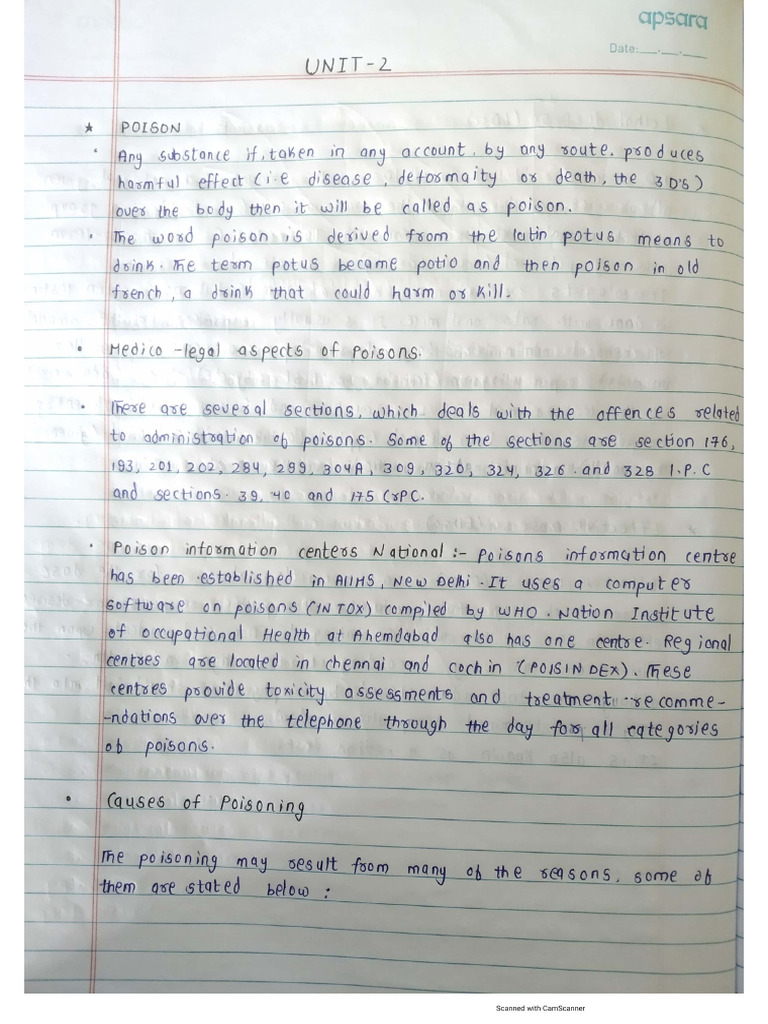 apsara
Date:__.__.__
UNIT-2
★ POISON
• Any substance if, taken in any account, by any route. produces
harmful effect (i.e disease, deformaity or death, the 3 D'S)
over the body then it will be called as poison.
• The word poison is derived from the latin potus means to
drink. The term potus became potio and then poison in old
french, a drink that could harm or kill.
• Medico-legal aspects of Poisons.
• There are several sections, which deals with the offences related
to administration of poisons. Some of the sections are section 176,
193, 201, 202, 284, 299, 304A, 309, 320, 324, 326. and 328 I.P.C
and sections. 39, 40 and 175 CrPC.
• Poison information centers National :- Poisons information centre
has been established in AIIHS, New Delhi. It uses a computer
software on poisons (INTOX) compiled by WHO. Nation Institute
of occupational Health at Ahemdabad also has one centre. Regional
centres are located in chennai and cochin (POISINDEX). These
centres provide toxicity assessments and treatment recomme-
-ndations over the telephone through the day for all categories
of poisons.
• Causes of Poisoning
The poisoning may result from many of the reasons, some of
them are stated below :
Scanned with CamScanner